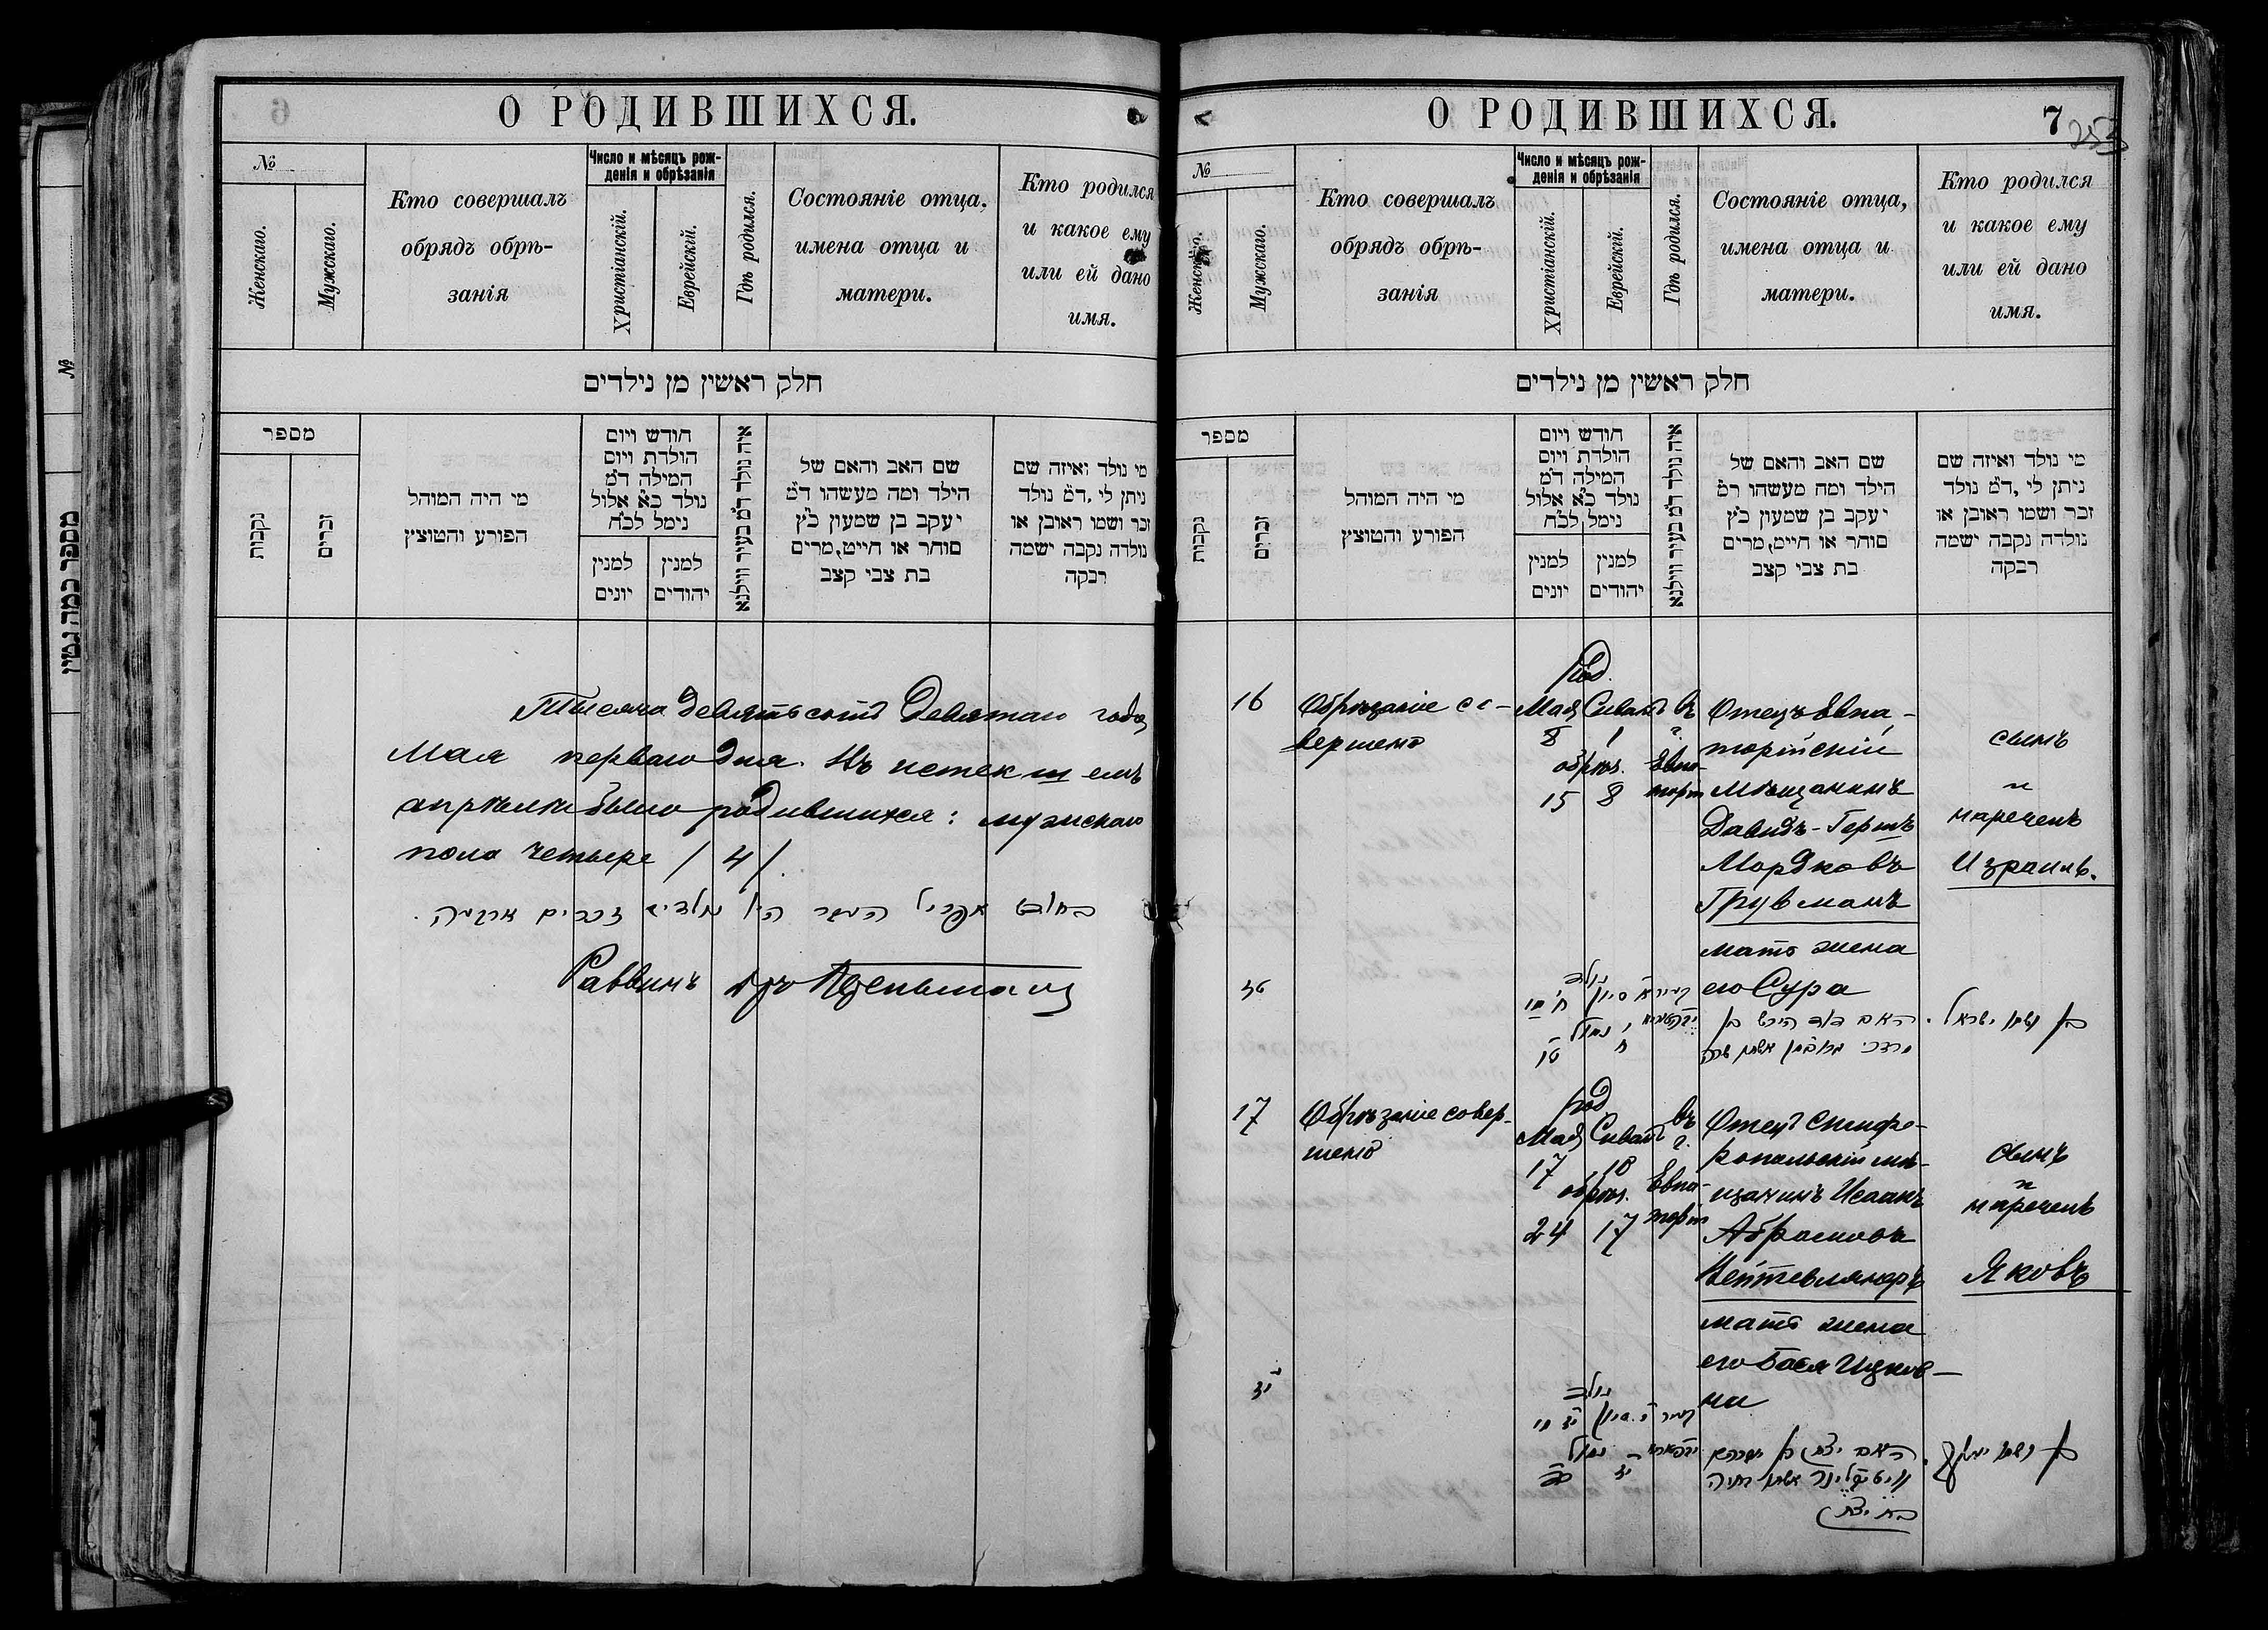 О РОДИВШИХСЯ.
№
Женскаго.
Мужскаго.
Кто совершалъ
обрядъ обрѣ-
занія
Число и мѣсяцъ рож-
денія и обрѣзанія
Христіанскій.
Еврейскій.
Гдѣ родился.
Состояніе отца,
имена отца и
матери.
Кто родился
и какое ему
или ей дано
имя.
חלק ראשין מן נילדים
מספר
נקבות
זכרים
מי היה המוהל
הפורע והטוצץ
חודש ויום
הולדת ויום
המילה ד״מ
נולד כ״א אלול
נימל לכ״ח
למנין
יונים
למנין
יהודים
איה נולד ד״מ בעיר ווילנא
שם האב והאם של
הילד ומה מעשהו ד״מ
יעקב בן שמעון כ״ץ
סוחר או חייט,מרים
בת צבי קצב
מי נולד ואיזה שם
ניתן לי ,ד״מ נולד
זכר ושמו ראובן או
נולדה נקבה ישמה
רבקה
Тысяча девятьсотъ девятаго года
Мая перваго дня. Въ истекшемъ
апрѣлѣ было родившихся: мужскаго
пола четыре /4/.
Раввинъ
О РОДИВШИХСЯ.
7
253
№
Женскаго.
Мужскаго.
Кто совершалъ
обрядъ обрѣ-
занія
Число и мѣсяцъ рож-
денія и обрѣзанія
Христіанскій.
Еврейскій.
Гдѣ родился.
Состояніе отца,
имена отца и
матери.
Кто родился
и какое ему
или ей дано
имя.
חלק ראשין מן נילדים
מספר
נקבות
זכרים
מי היה המוהל
הפורע והטוצץ
חודש ויום
הולדת ויום
המילה ד״מ
נולד כ״א אלול
נימל לכ״ח
למנין
יונים
למנין
יהודים
איה נולד ד״מ בעיר ווילנא
שם האב והאם של
הילד ומה מעשהו ר״מ
יעקב בן שמעון כ״ץ
סוחר או חייט,מרים
בת צבי קצב
מי נולד ואיזה שם
ניתן לי ,ד״מ נולד
זכר ושמו ראובן או
נולדה נקבה ישמה
רבקה
16
Обрѣзаніе со-
вершено
Род.
Мая Сиванъ
8 1
обрѣз.
15 8
въ
г.
Евпа-
тор.
Отецъ Евпа-
торійскій
мѣщанинъ
Давидъ-Гершъ
Мордковъ
Грувманъ
мать жена
его Сура
сынъ
и
нареченъ
Израиль.
בן ושמו ישראל
17
Обрѣзаніе совер-
шено
Род
Мая Сиванъ
17 10
обрѣз.
24 17
въ
г.
Евпа-
тор.
Отецъ Симфе-
ропольскій мѣ-
щанинъ Исаакъ
Абрамовъ
мать жена
его Бася Ицков-
на
сынъ
и
нареченъ
Яковъ
בן ושמו יעקב